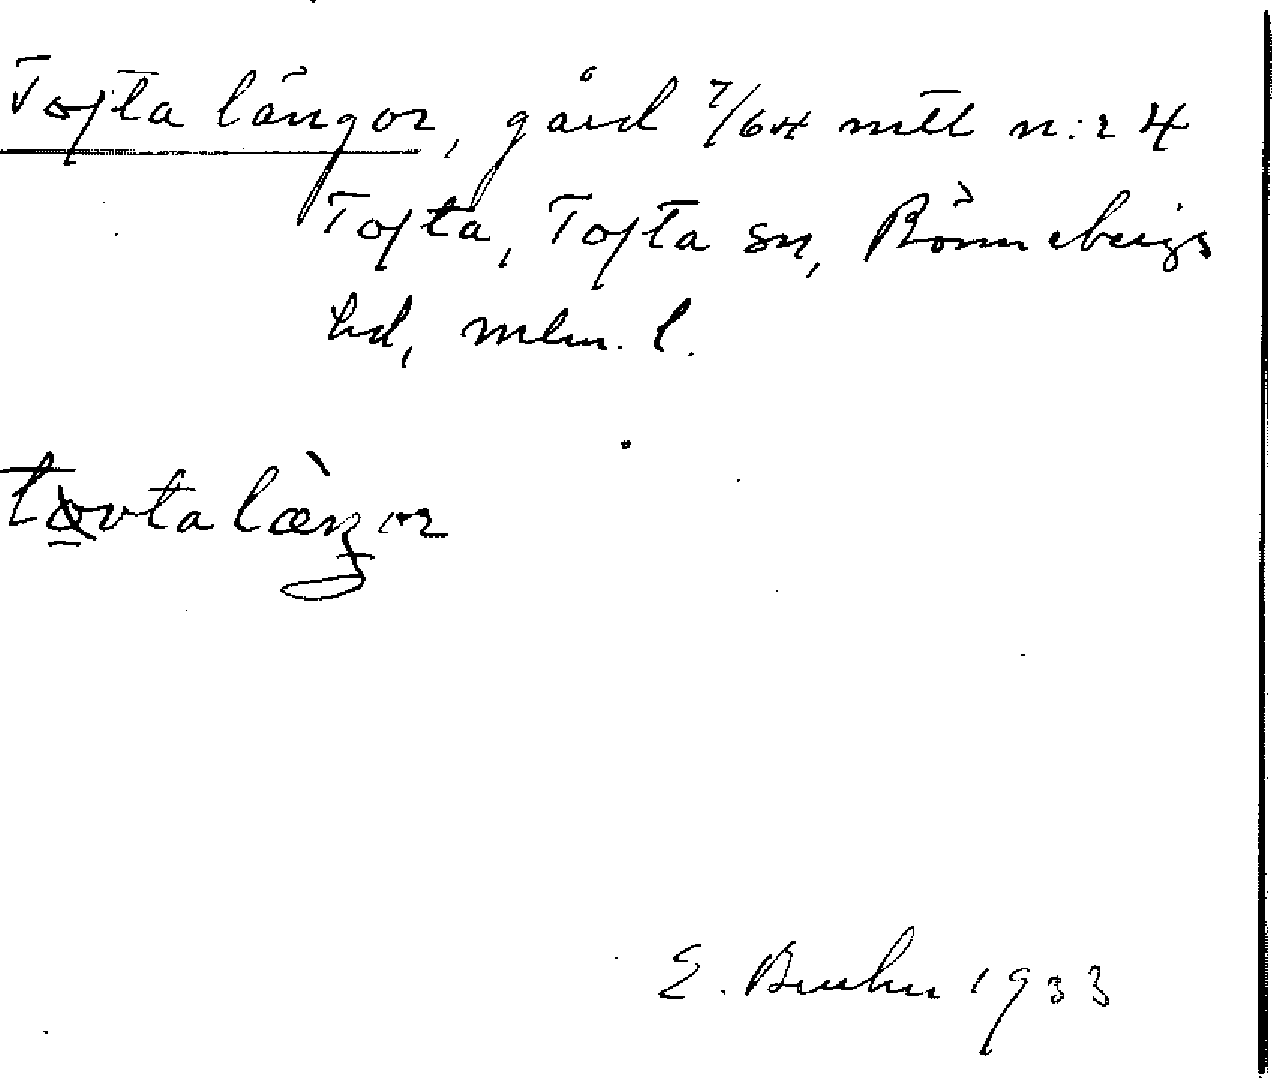 Tofta längor, gård 7/64 mtl n:r 4
Tofta, Tofta sn, Rönnebergs
hd, mlm. l.
E. Bruhn 1933